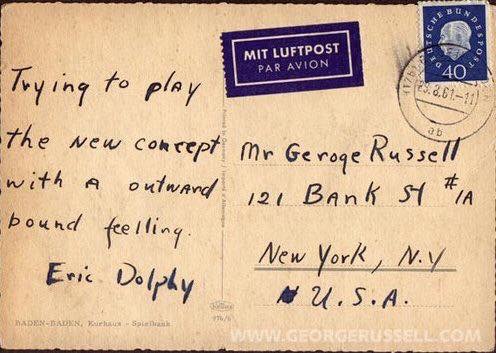 MIT LUFTPOST
PAR AVION
DEUTSCHE BUNDESPOST
40
.8.61.-11
ab
Trying to play
the new concept
with a outward
bound feelling.
Eric Dolphy
Mr Geroge Russell
121 Bank St #1A
New York, N.Y
U.S.A.
976/6
BADEN-BADEN, Kurhaus - Spielbank
WWW.GEORGERUSSELL.COM